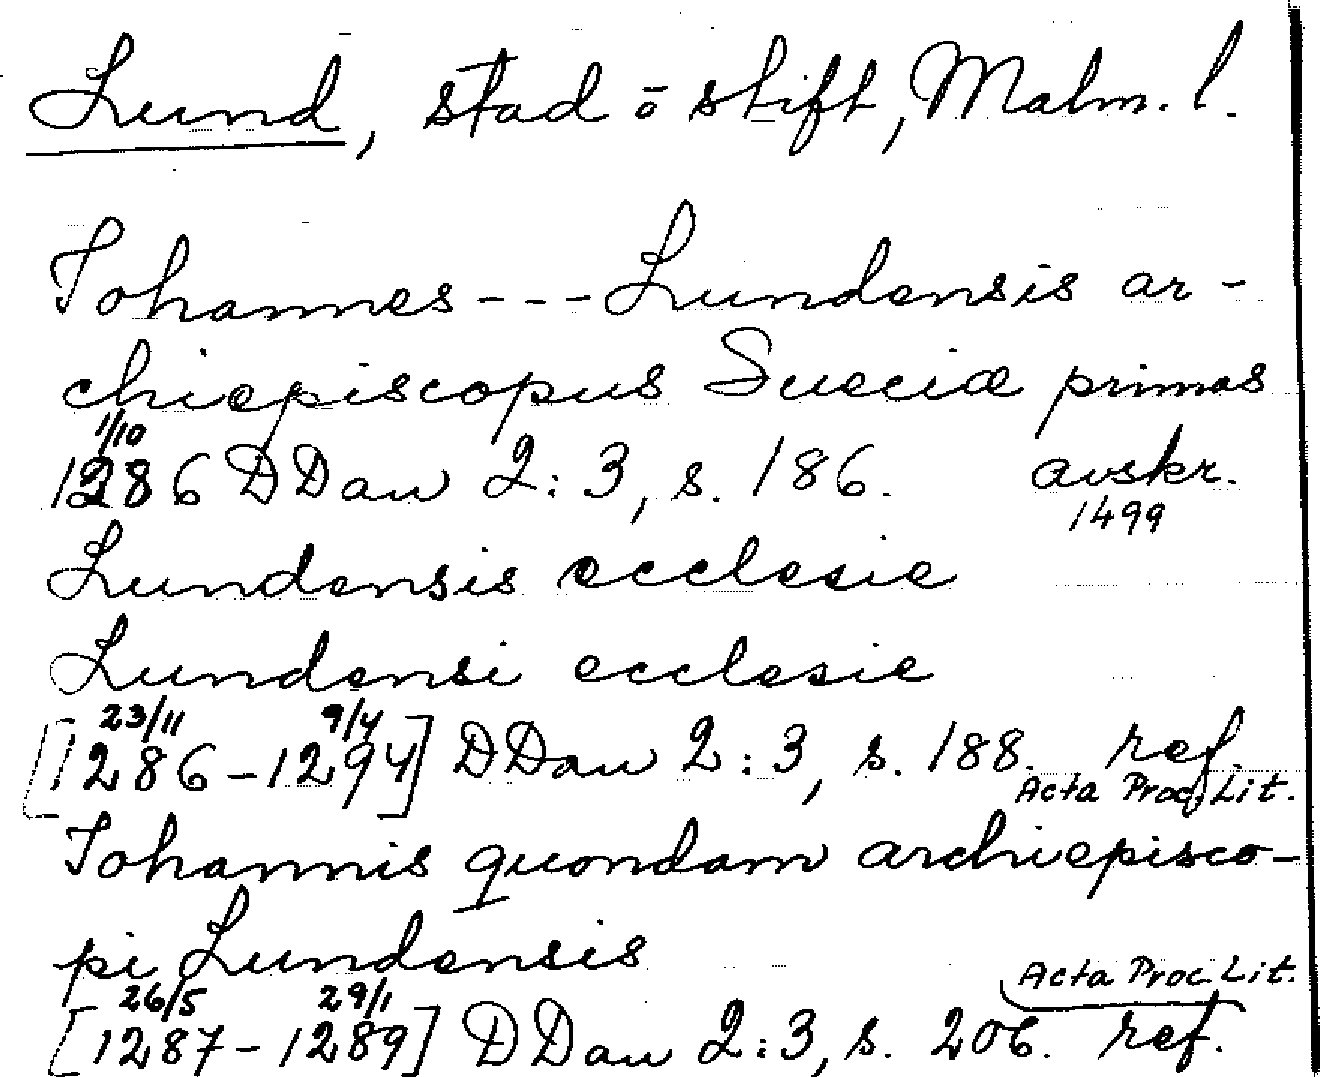 Lund, stad o stift, Malm. l.
Johannes --- Lundensis ar-
chiepiscopus Sueciæ primas
1/10
1286 DDan 2:3, s. 186. avskr.
1499
Lundensis ecclesie
Lundensi ecclesie
23/11 9/4
[1286-1294] DDan 2:3, s. 188. ref.
Acta Proc. Lit.
Johannis quondam archiepisco-
pi Lundensis
26/5 29/1 Acta Proc. Lit.
[1287-1289] DDan 2:3, s. 206. ref.